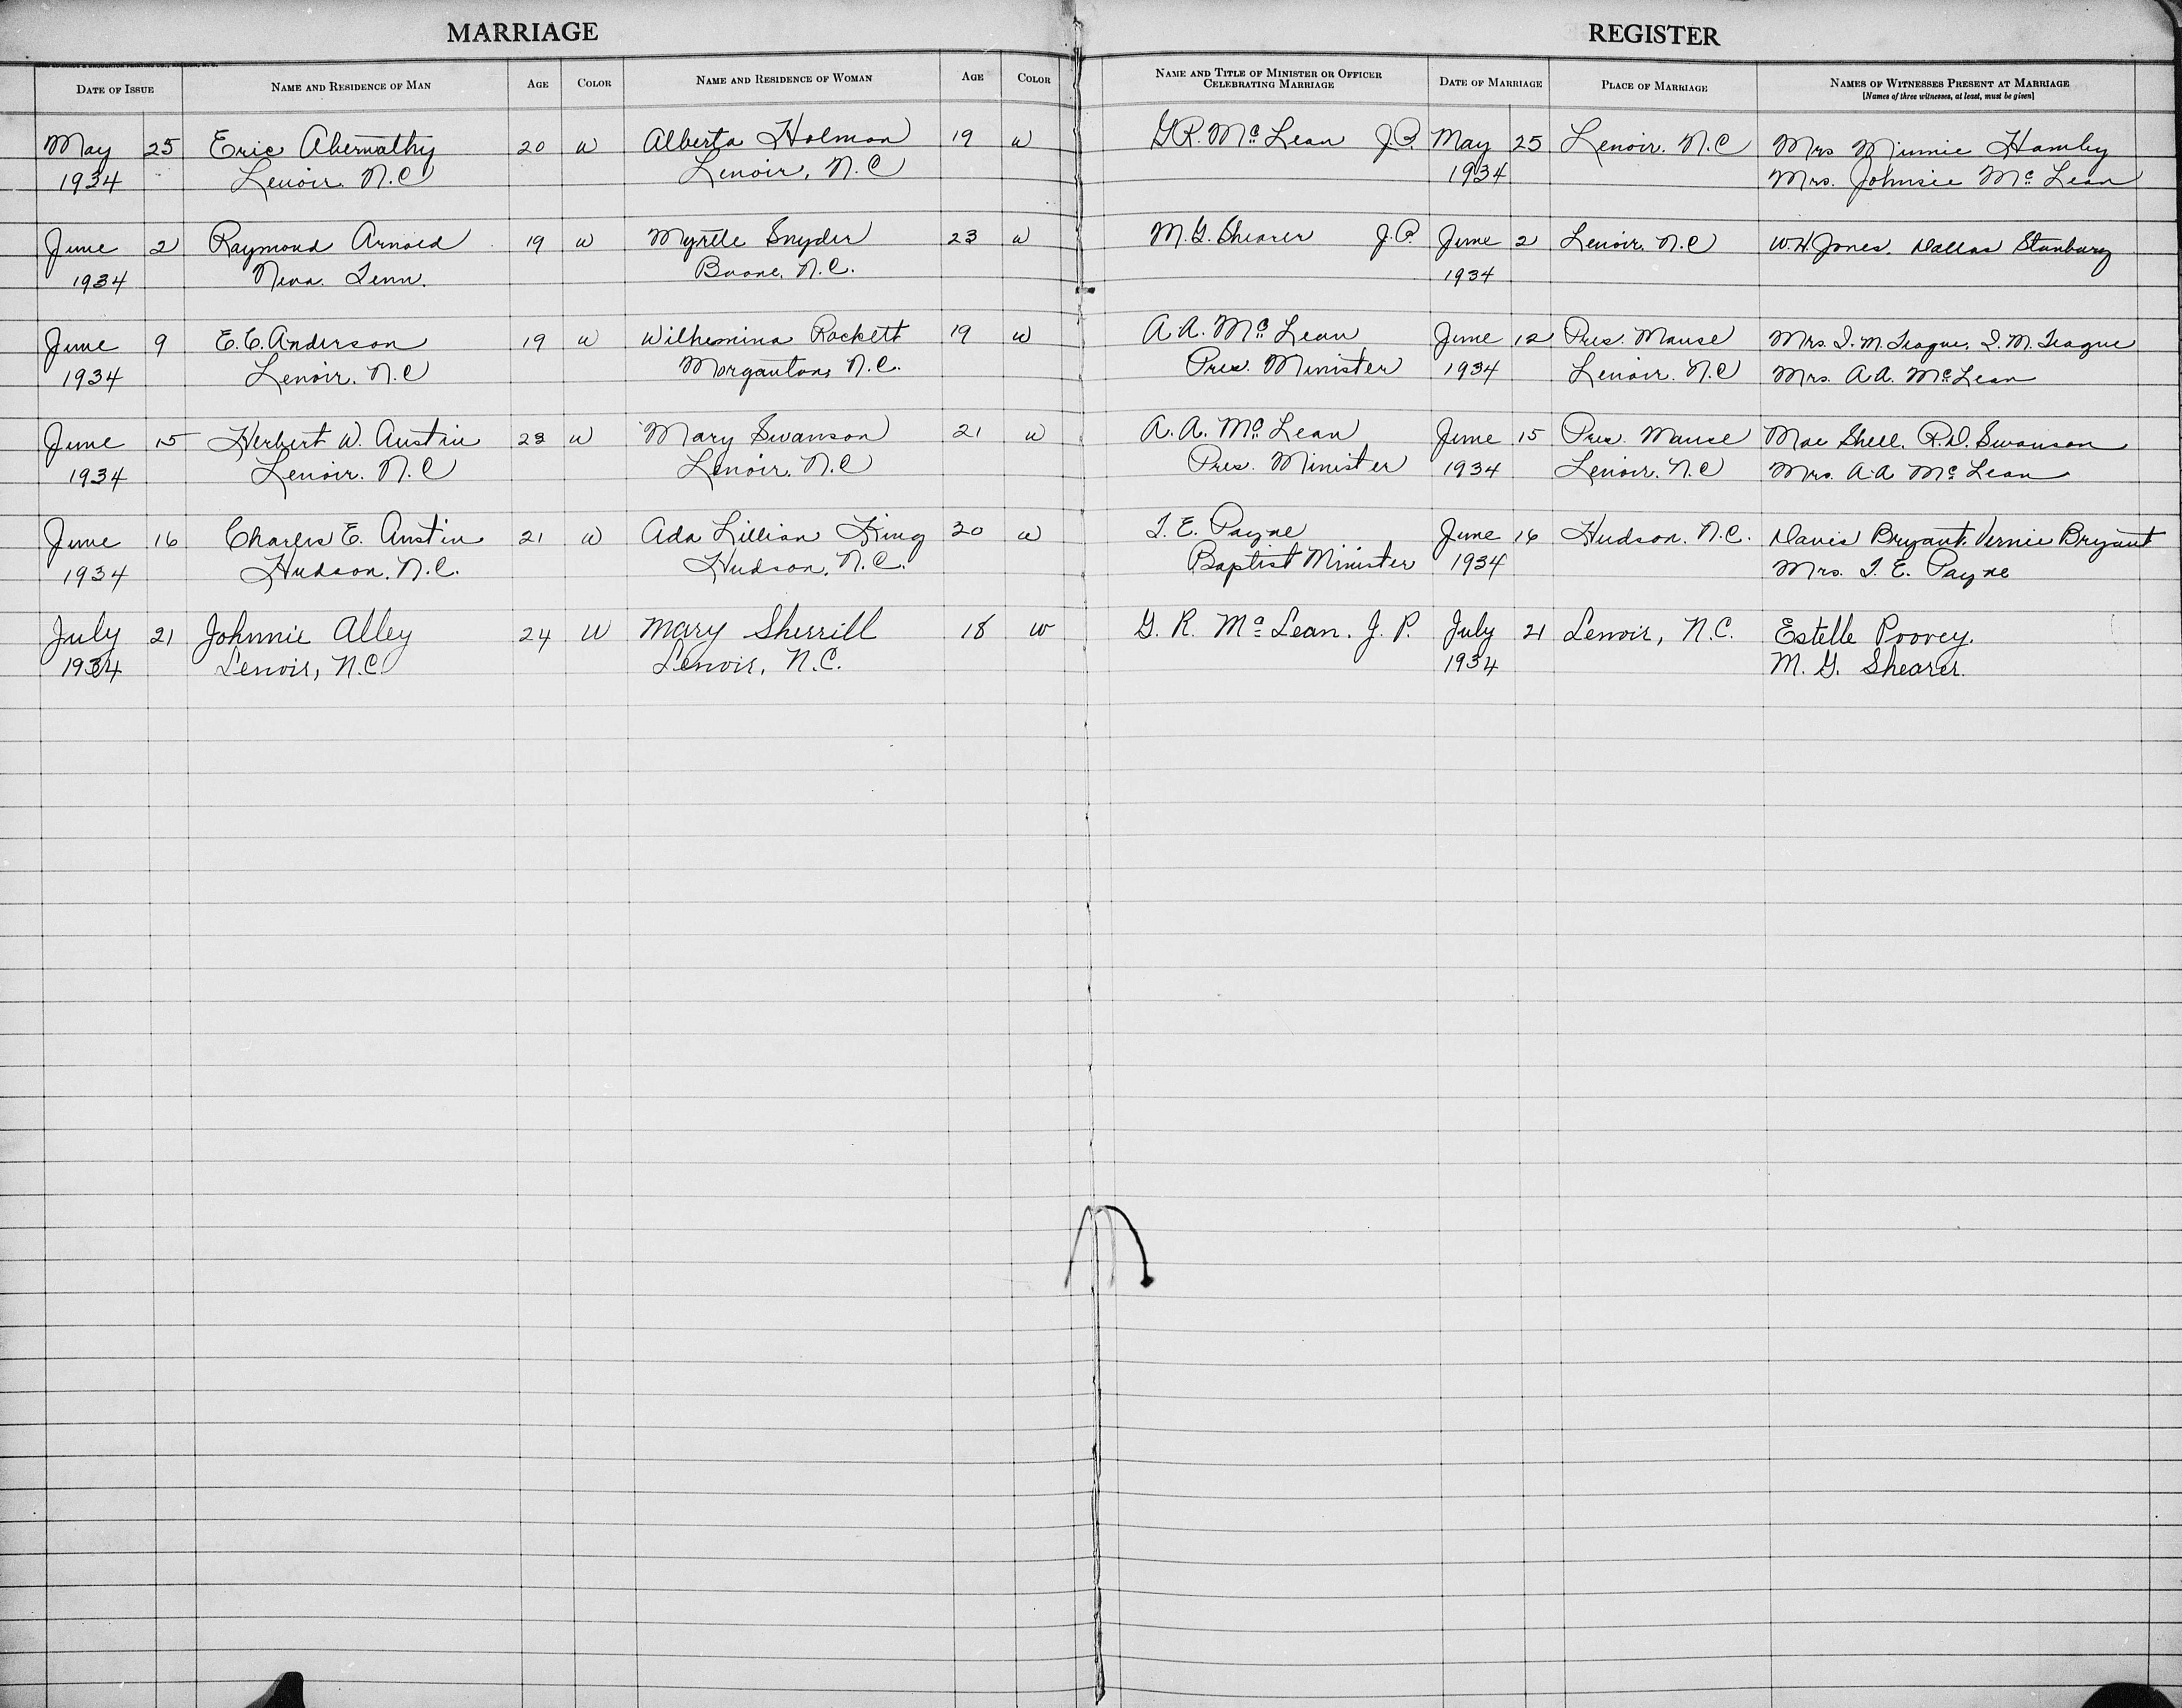 MARRIAGE REGISTER
DATE OF ISSUE NAME AND RESIDENCE OF MAN AGE COLOR NAME AND RESIDENCE OF WOMAN AGE COLOR NAME AND TITLE OF MINISTER OR OFFICER CELEBRATING MARRIAGE DATE OF MARRIAGE PLACE OF MARRIAGE NAMES OF WITNESSES PRESENT AT MARRIAGE
[Names of three witnesses, at least, must be given]
May 25 Eric Abernathy 20 W Alberta Holman 19 W G.R. Mc Lean J.P. May 25 Lenoir. N.C Mrs Minnie Hamby
1934 Lenoir. N.C Lenoir, N.C 1934 Mrs. Johnsie Mc Lean
June 2 Raymond Arnold 19 W Myrtle Snyder 23 W M.G. Shearer J.P. June 2 Lenoir. N.C W.H. Jones. Dallas Stanbury
1934 Neva. Tenn. Boone, N.C. 1934
June 9 E.C. Anderson 19 W Wilhemina Rockett 19 W A.A. Mc Lean June 12 Pres. Manse Mrs. I.M. Teague. I.M. Teague
1934 Lenoir. N.C Morganton, N.C. Pres. Minister 1934 Lenoir. N.C Mrs. A.A. McLean
June 15 Herbert W. Austin 23 W Mary Swanson 21 W A.A. Mc Lean June 15 Pres. Manse Mae Shell. R.D. Swanson
1934 Lenoir. N.C Lenoir. N.C Pres. Minister 1934 Lenoir. N.C Mrs. A.A Mc Lean
June 16 Charles E. Austin 21 W Ada Lillian King 20 W I. E. Payne June 16 Hudson. N.C. Davis Bryant. Vernie Bryant
1934 Hudson. N.C. Hudson, N.C. Baptist Minister 1934 Mrs. I. E. Payne
July 21 Johnnie Alley 24 W Mary Sherrill 18 W G. R. Mc Lean. J. P. July 21 Lenoir, N.C. Estelle Poovey.
1934 Lenoir, N.C. Lenoir, N.C. 1934 M. G. Shearer.